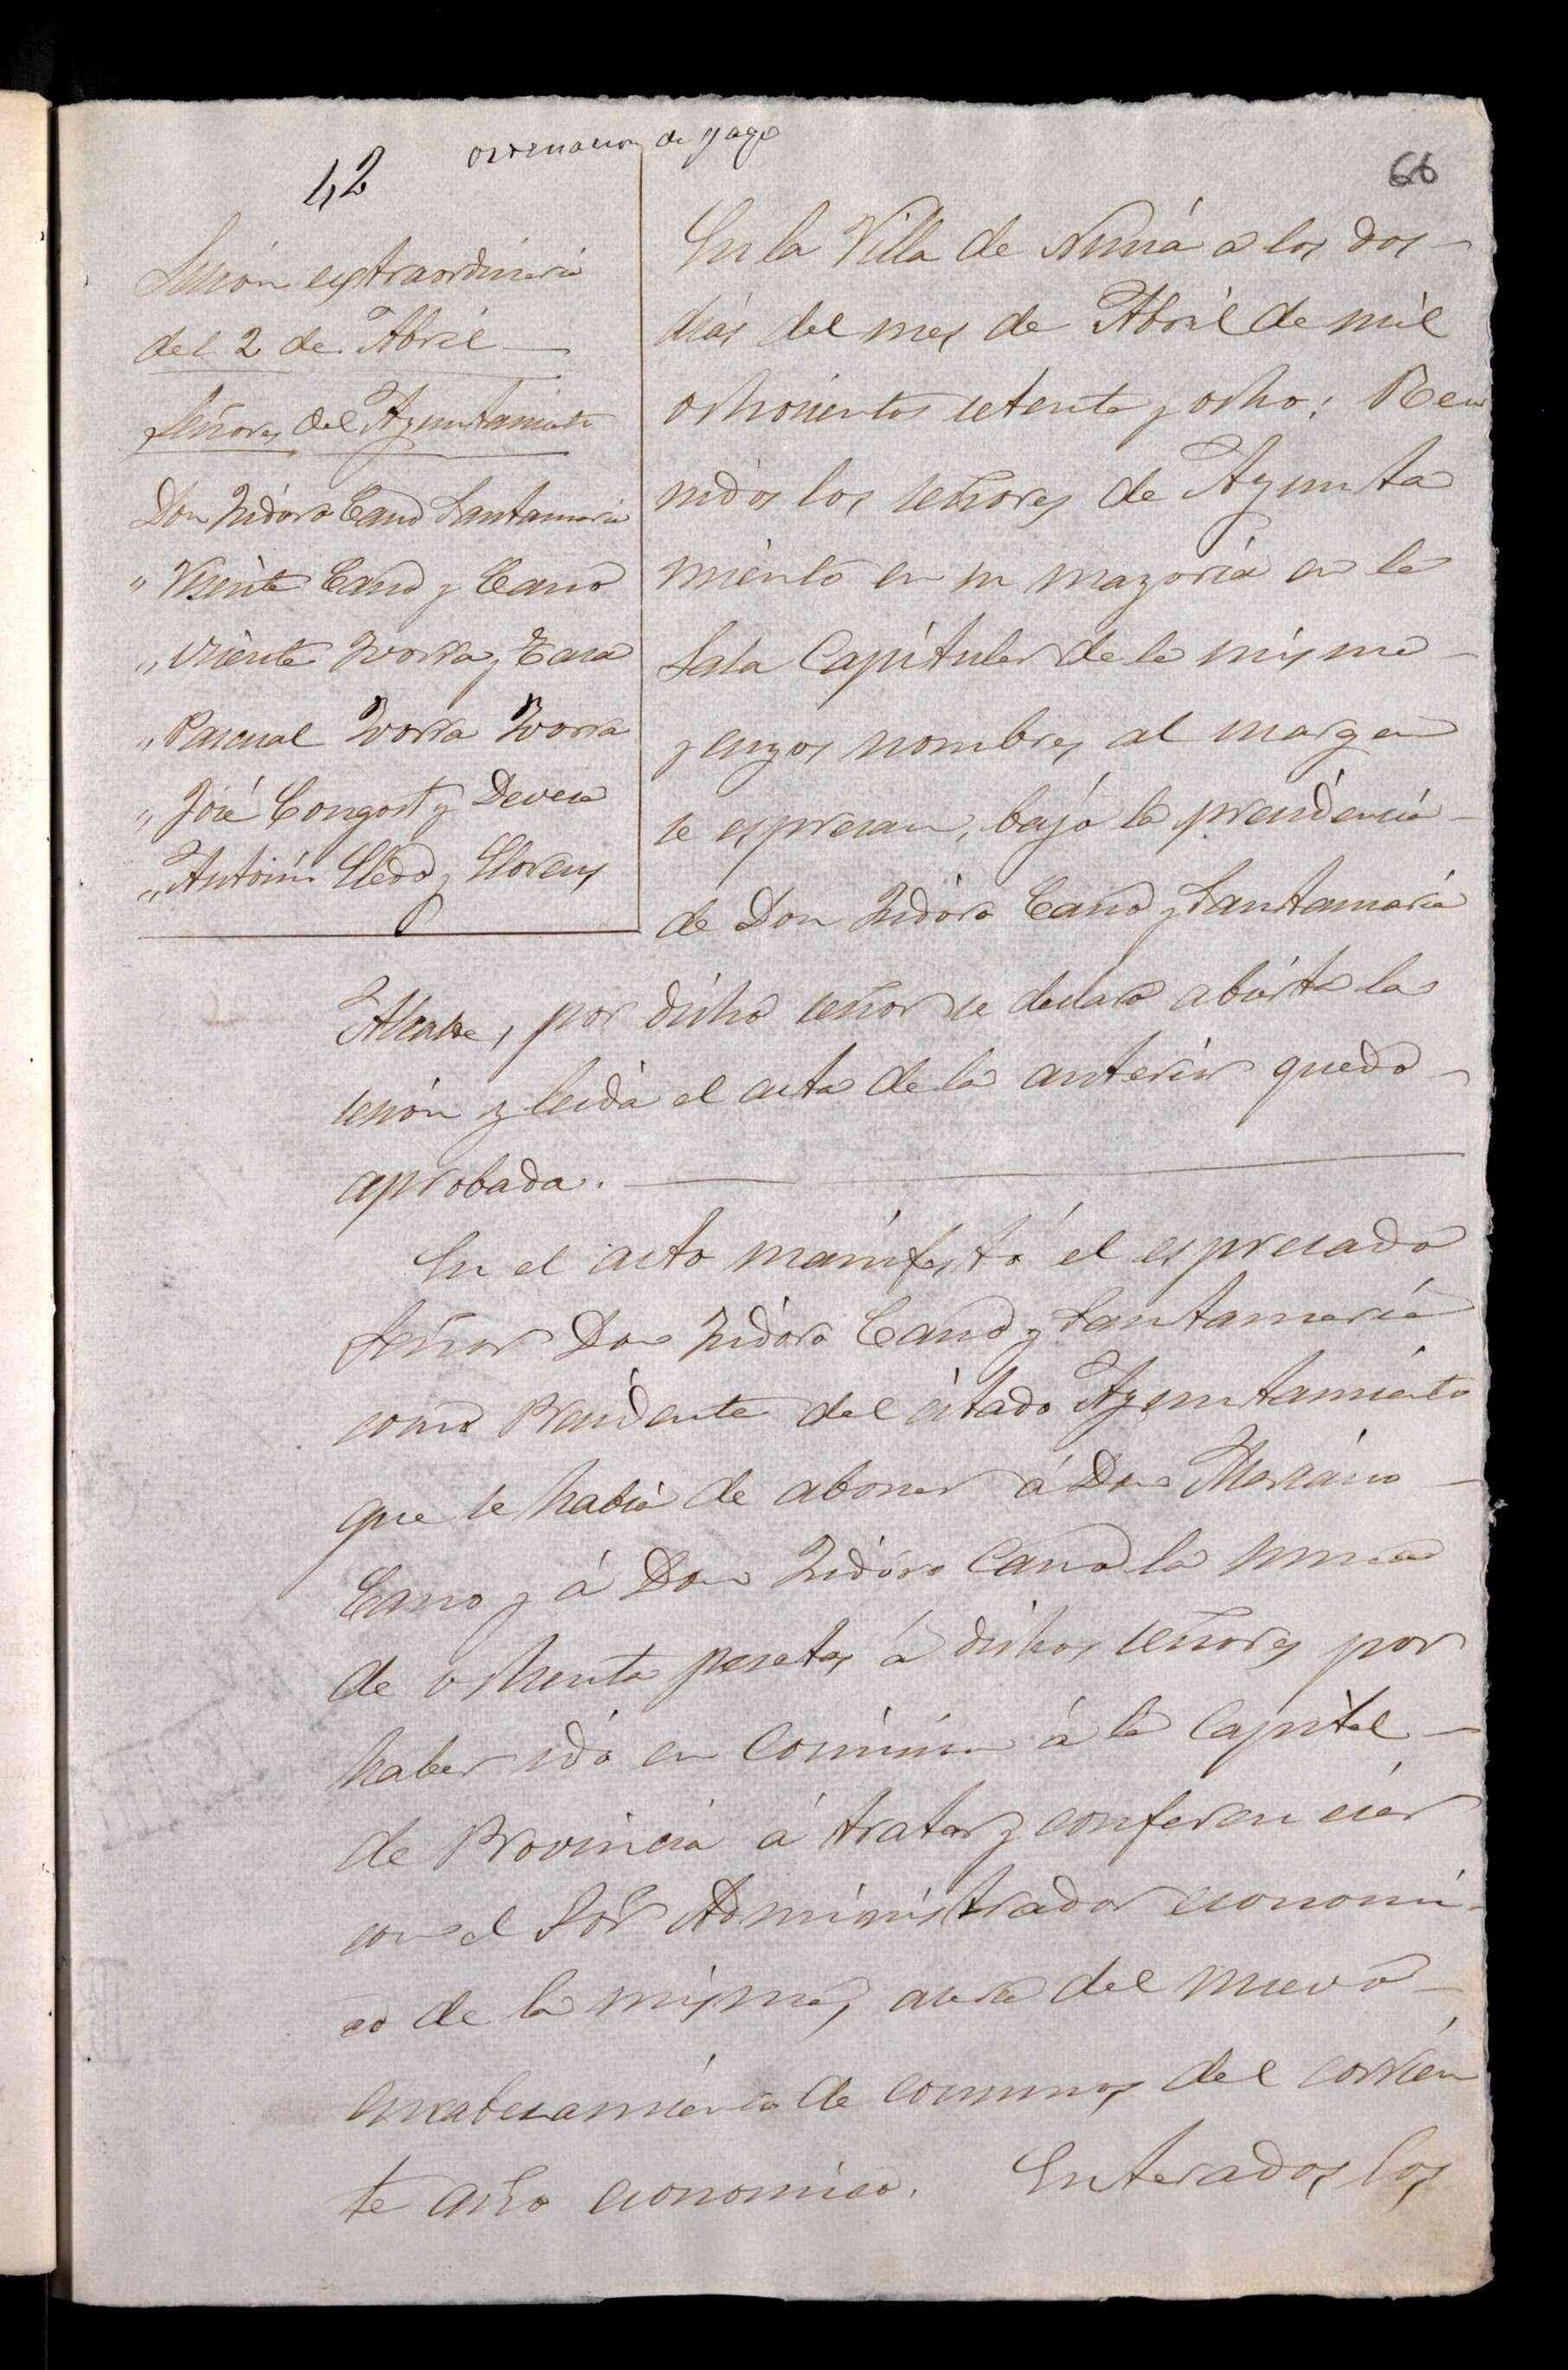 ordenacion de pago
42
66
Sesión extraordinaria
del 2 de Abril
Señores del Ayuntamiento
Don Isidoro Cano Santamaria
" Vicente Cano y Cano
" Vicente Ivorra y Cano
" Pascual Ivorra Ivorra
" José Congost y Devesa
" Antonio Lledo y Llorens
En la Villa de a los dos
dias del mes de Abril de mil
ochocientos setenta y ocho; Reu
nidos los señores de Ayunta
miento en su mayoria en la
Sala Capitular de la misma
y cuyos nombres al margen
se espresan, bajo la presidencia
de Don Isidoro Cano y Santamaria
Alcalde, por dicho señor se declaro abierta la
sesión y leida el acta de la anterior quedo
aprobada.
En el acto manifestó el espresado
Señor Don Isidoro Cano y Santamaria
como Presidente del citado Ayuntamiento
que se habia de abonar á Don Mariano
Cano y á Don Isidoro Cano la suma
de ochenta pesetas á dichos señores por
haber ido en Comision á la Capital
de Provincia á tratar y conferenciar
con el Sor Administrador economi-
co de la misma, acerca del nuevo
encabezamiento de consumos del corrien
te año economico. Enterados los